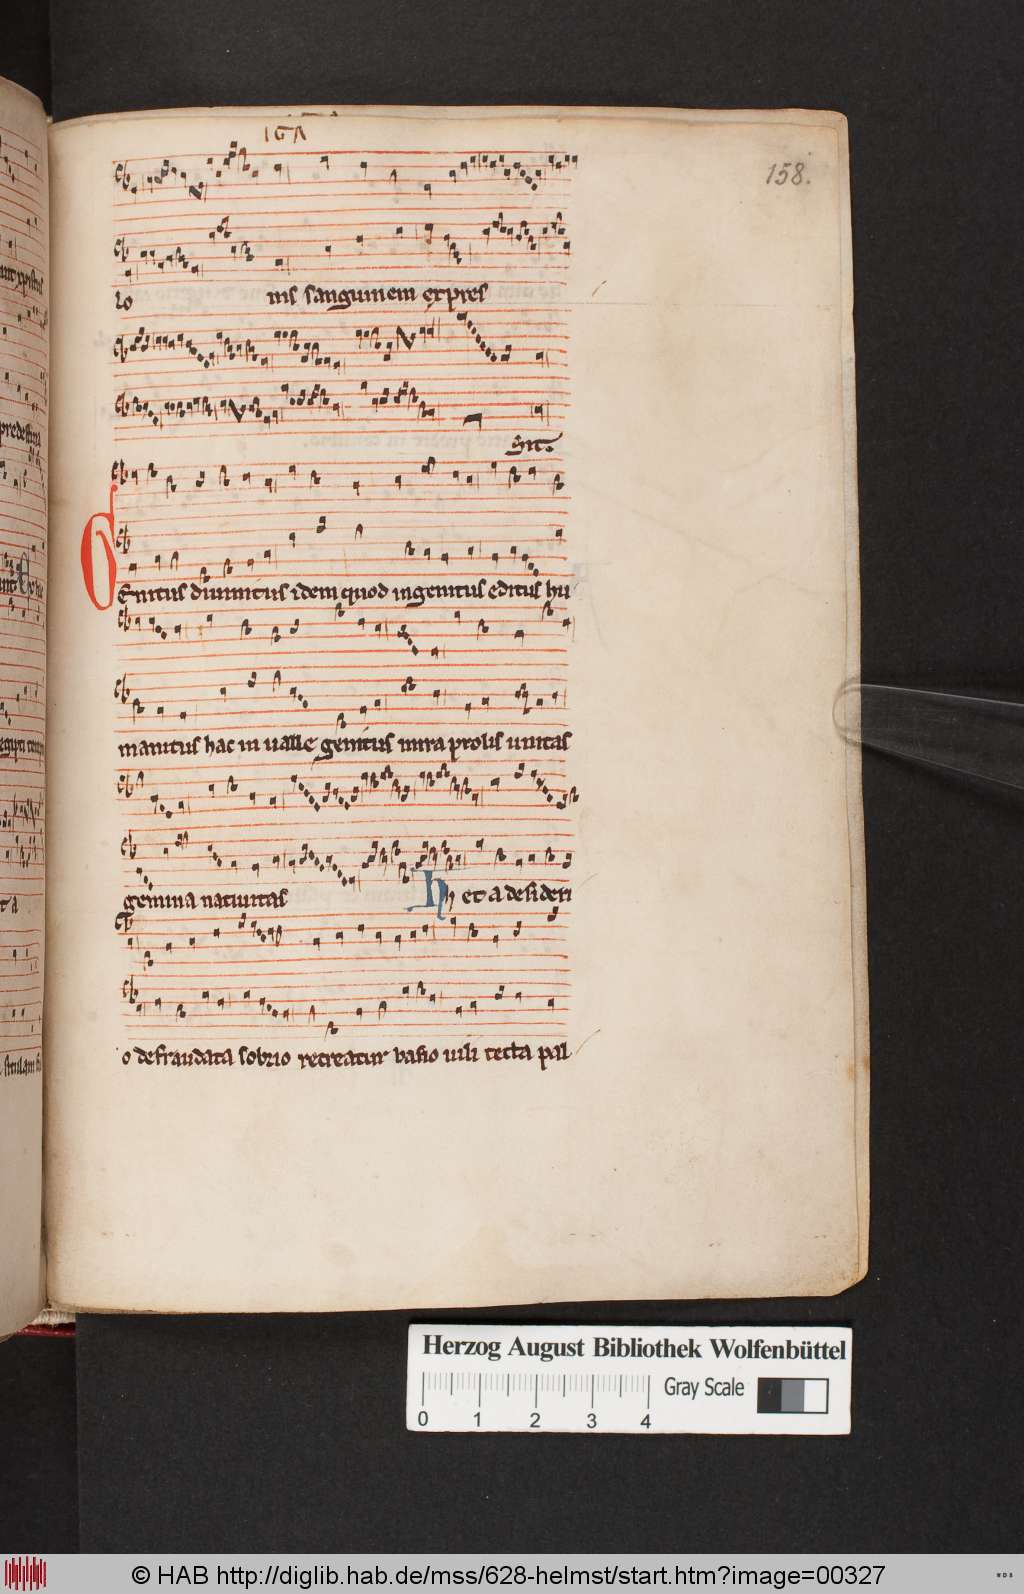 158.
lo nis sanguinem expres
sit.
Genitus diuinitus idem quod ingenitus editus hu
manitus hac in ualle genitus mira prolis unitas
gemina natiuitas Hh et a desideri
o defraudata sobrio recreatur basio uili tecta pal
Herzog August Bibliothek Wolfenbüttel
0 1 2 3 4 Gray Scale
© HAB http://diglib.hab.de/mss/628-helmst/start.htm?image=00327